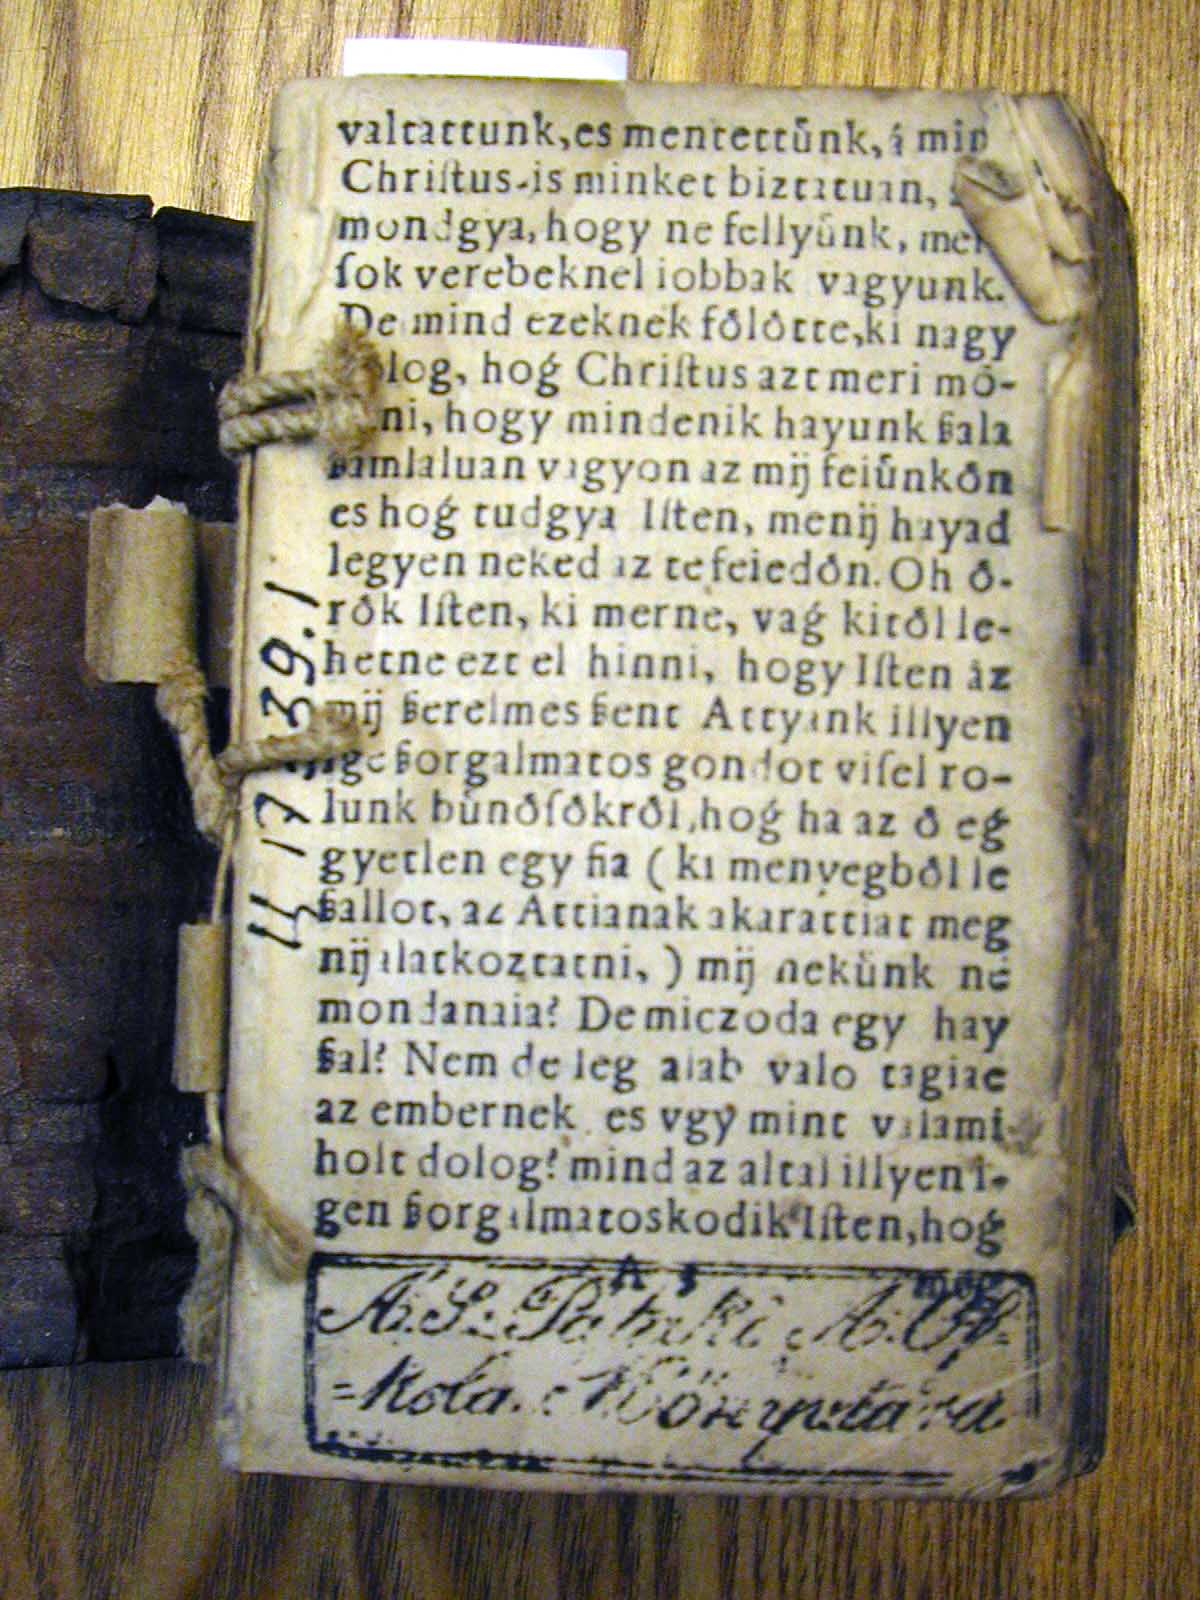 valtattunk, es mentettůnk, á min
Chriſtus-is minket biztatuan,
mondgya, hogy ne fellyůnk, mer
ſok verebeknel iobbak vagyunk.
De mind ezeknek fo̊lo̊tte, ki nagy
dolog, hoǵ Chriſtus azt meri mō-
ni, hogy mindenik hayunk ßala
ßamlaluan vagyon az mij feiůnko̊n
es hoǵ tudgya Iſten, menij hayad
legyen neked az te feiedo̊n. Oh o̊-
ro̊k Iſten, ki merne, vaǵ kito̊l le-
hetne ezt el hinni, hogy Iſten az
mij ßerelmes ßent Attyank illyen
ige ßorgalmatos gondot viſel ro-
lunk bůno̊ſo̊kro̊l, hoǵ ha az o̊ eǵ
gyetlen egy fia ( ki menyegbo̊l le
ßallot, az Attianak akarattiat meg
nijilatkoztatni, ) mij nekůnk nē
mondanaia? De miczoda egy hay
ßal? Nem de leg alab valo tagiae
az embernek es vgy mint valami
holt dolog? mind az altal illyen i-
gen ßorgalmatoskodik Iſten, hoǵ
A. S. Pataki A. Os-
=kola. Könyvtára